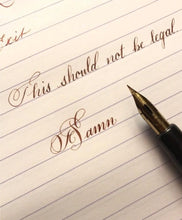 This should not be legal
Damn